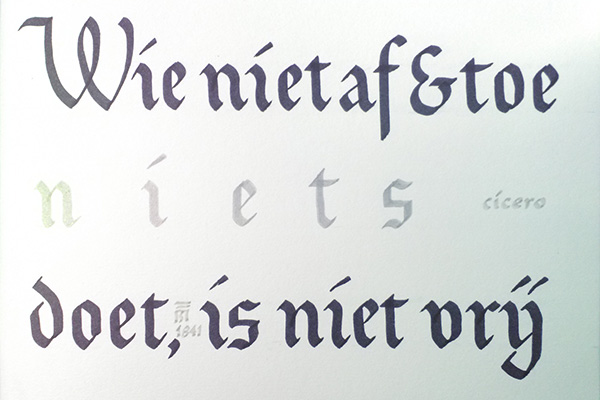 Wie niet af & toe
niets
cicero
doet, is niet vrij
1841